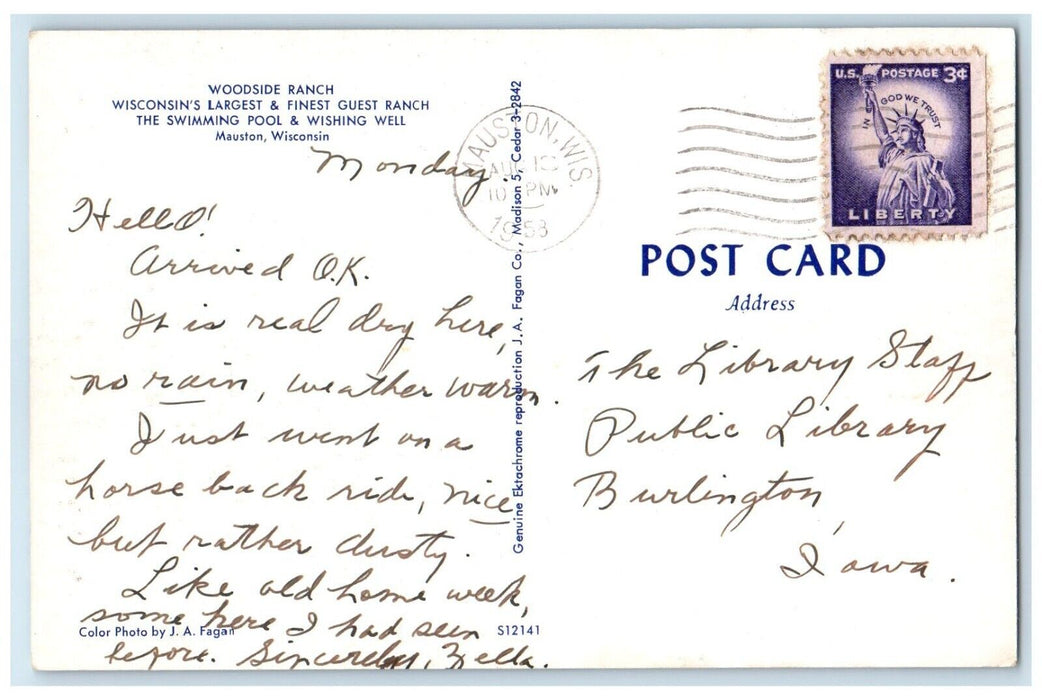 WOODSIDE RANCH
WISCONSIN'S LARGEST & FINEST GUEST RANCH
THE SWIMMING POOL & WISHING WELL
Mauston, Wisconsin
Monday.
Hello!
Arrived O.K.
It is real dry here,
no rain, weather warm.
Just went on a
horse back ride, nice
but rather dusty.
Like old home week,
some here I had seen
before. Sincerely, Zella.
Color Photo by J. A. Fagan
S12141
Genuine Ektachrome reproduction J. A. Fagan Co., Madison 5, Cedar 3-2842
MAUSTON, WIS.
AUG
PM
U.S. POSTAGE 3¢
IN GOD WE TRUST
LIBERTY
POST CARD
Address
The Library Staff
Public Library
Burlington,
Iowa.